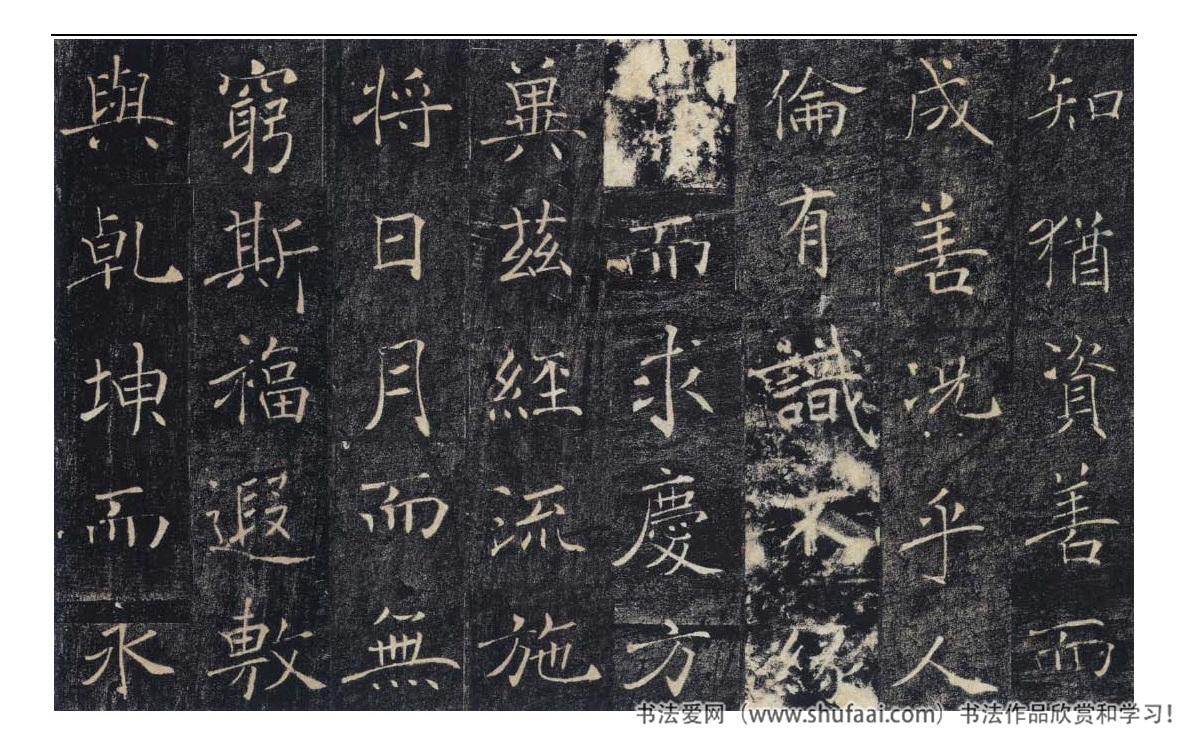 知猶資善而
成善況乎人
倫有識不緣
而求慶方
兾茲經流施
将日月而無
窮斯福遐敷
與乹坤而永
书法爱网（www.shufaai.com）书法作品欣赏和学习！